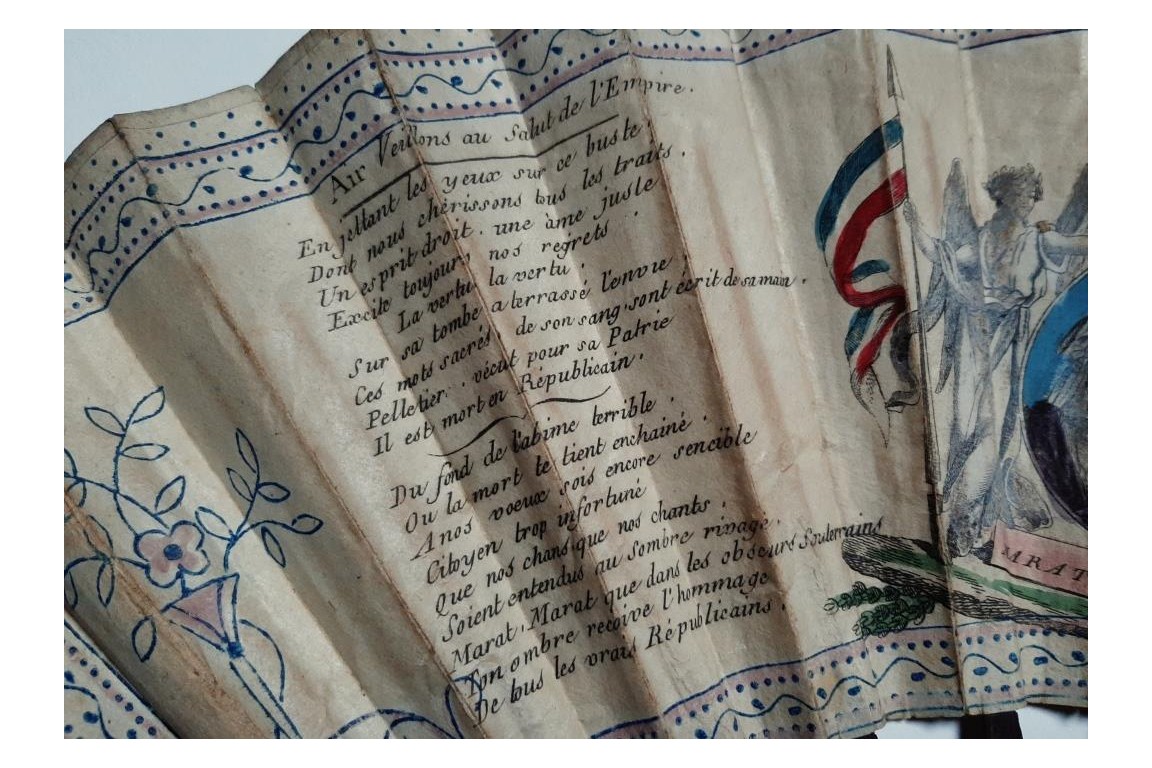 Air Veillons au Salut de l'Empire.
En jettant les yeux sur ce buste
Dont nous chérissons tous les traits.
Un esprit droit, une àme juste
Excite toujours nos regrets.
La vertu la vertu
Sur sa tombe a terrassé l'envie
Ces mots sacrés de son sang, sont écrit de sa main.
Pelletier, vécut pour sa Patrie
Il est mort en Républicain.
Du fond de l'abime terrible.
Ou la mort te tient enchainé.
A nos voeux sois encore sencible
Citoyen trop infortuné
Que nos chans que nos chants.
Soient entendus au sombre rivage.
Marat, Marat que dans les obscurs Souterrains
Ton ombre reçoive l'hommage
De tous les vrais Républicains.
MRAT